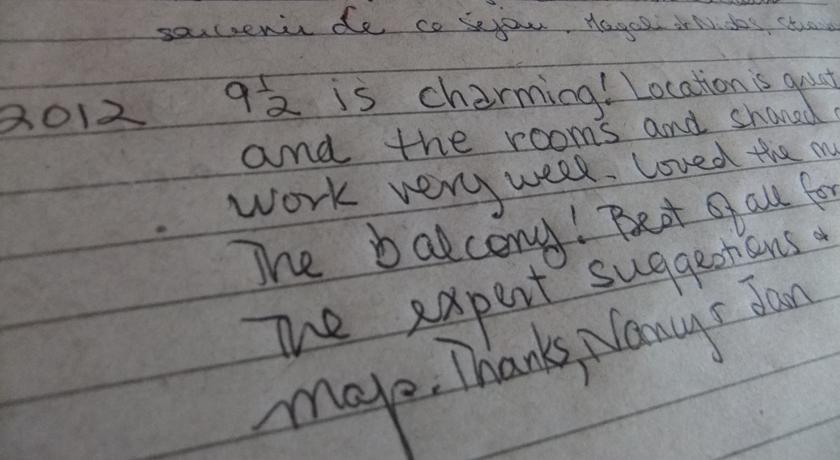 souvenir de ce séjour. Magali et Nicolas,
2012 9½ is charming! Location is great
and the rooms and shared
work very well. Loved the
The balcony! Best of all for
The expert suggestions &
map. Thanks, Nancy & Jan